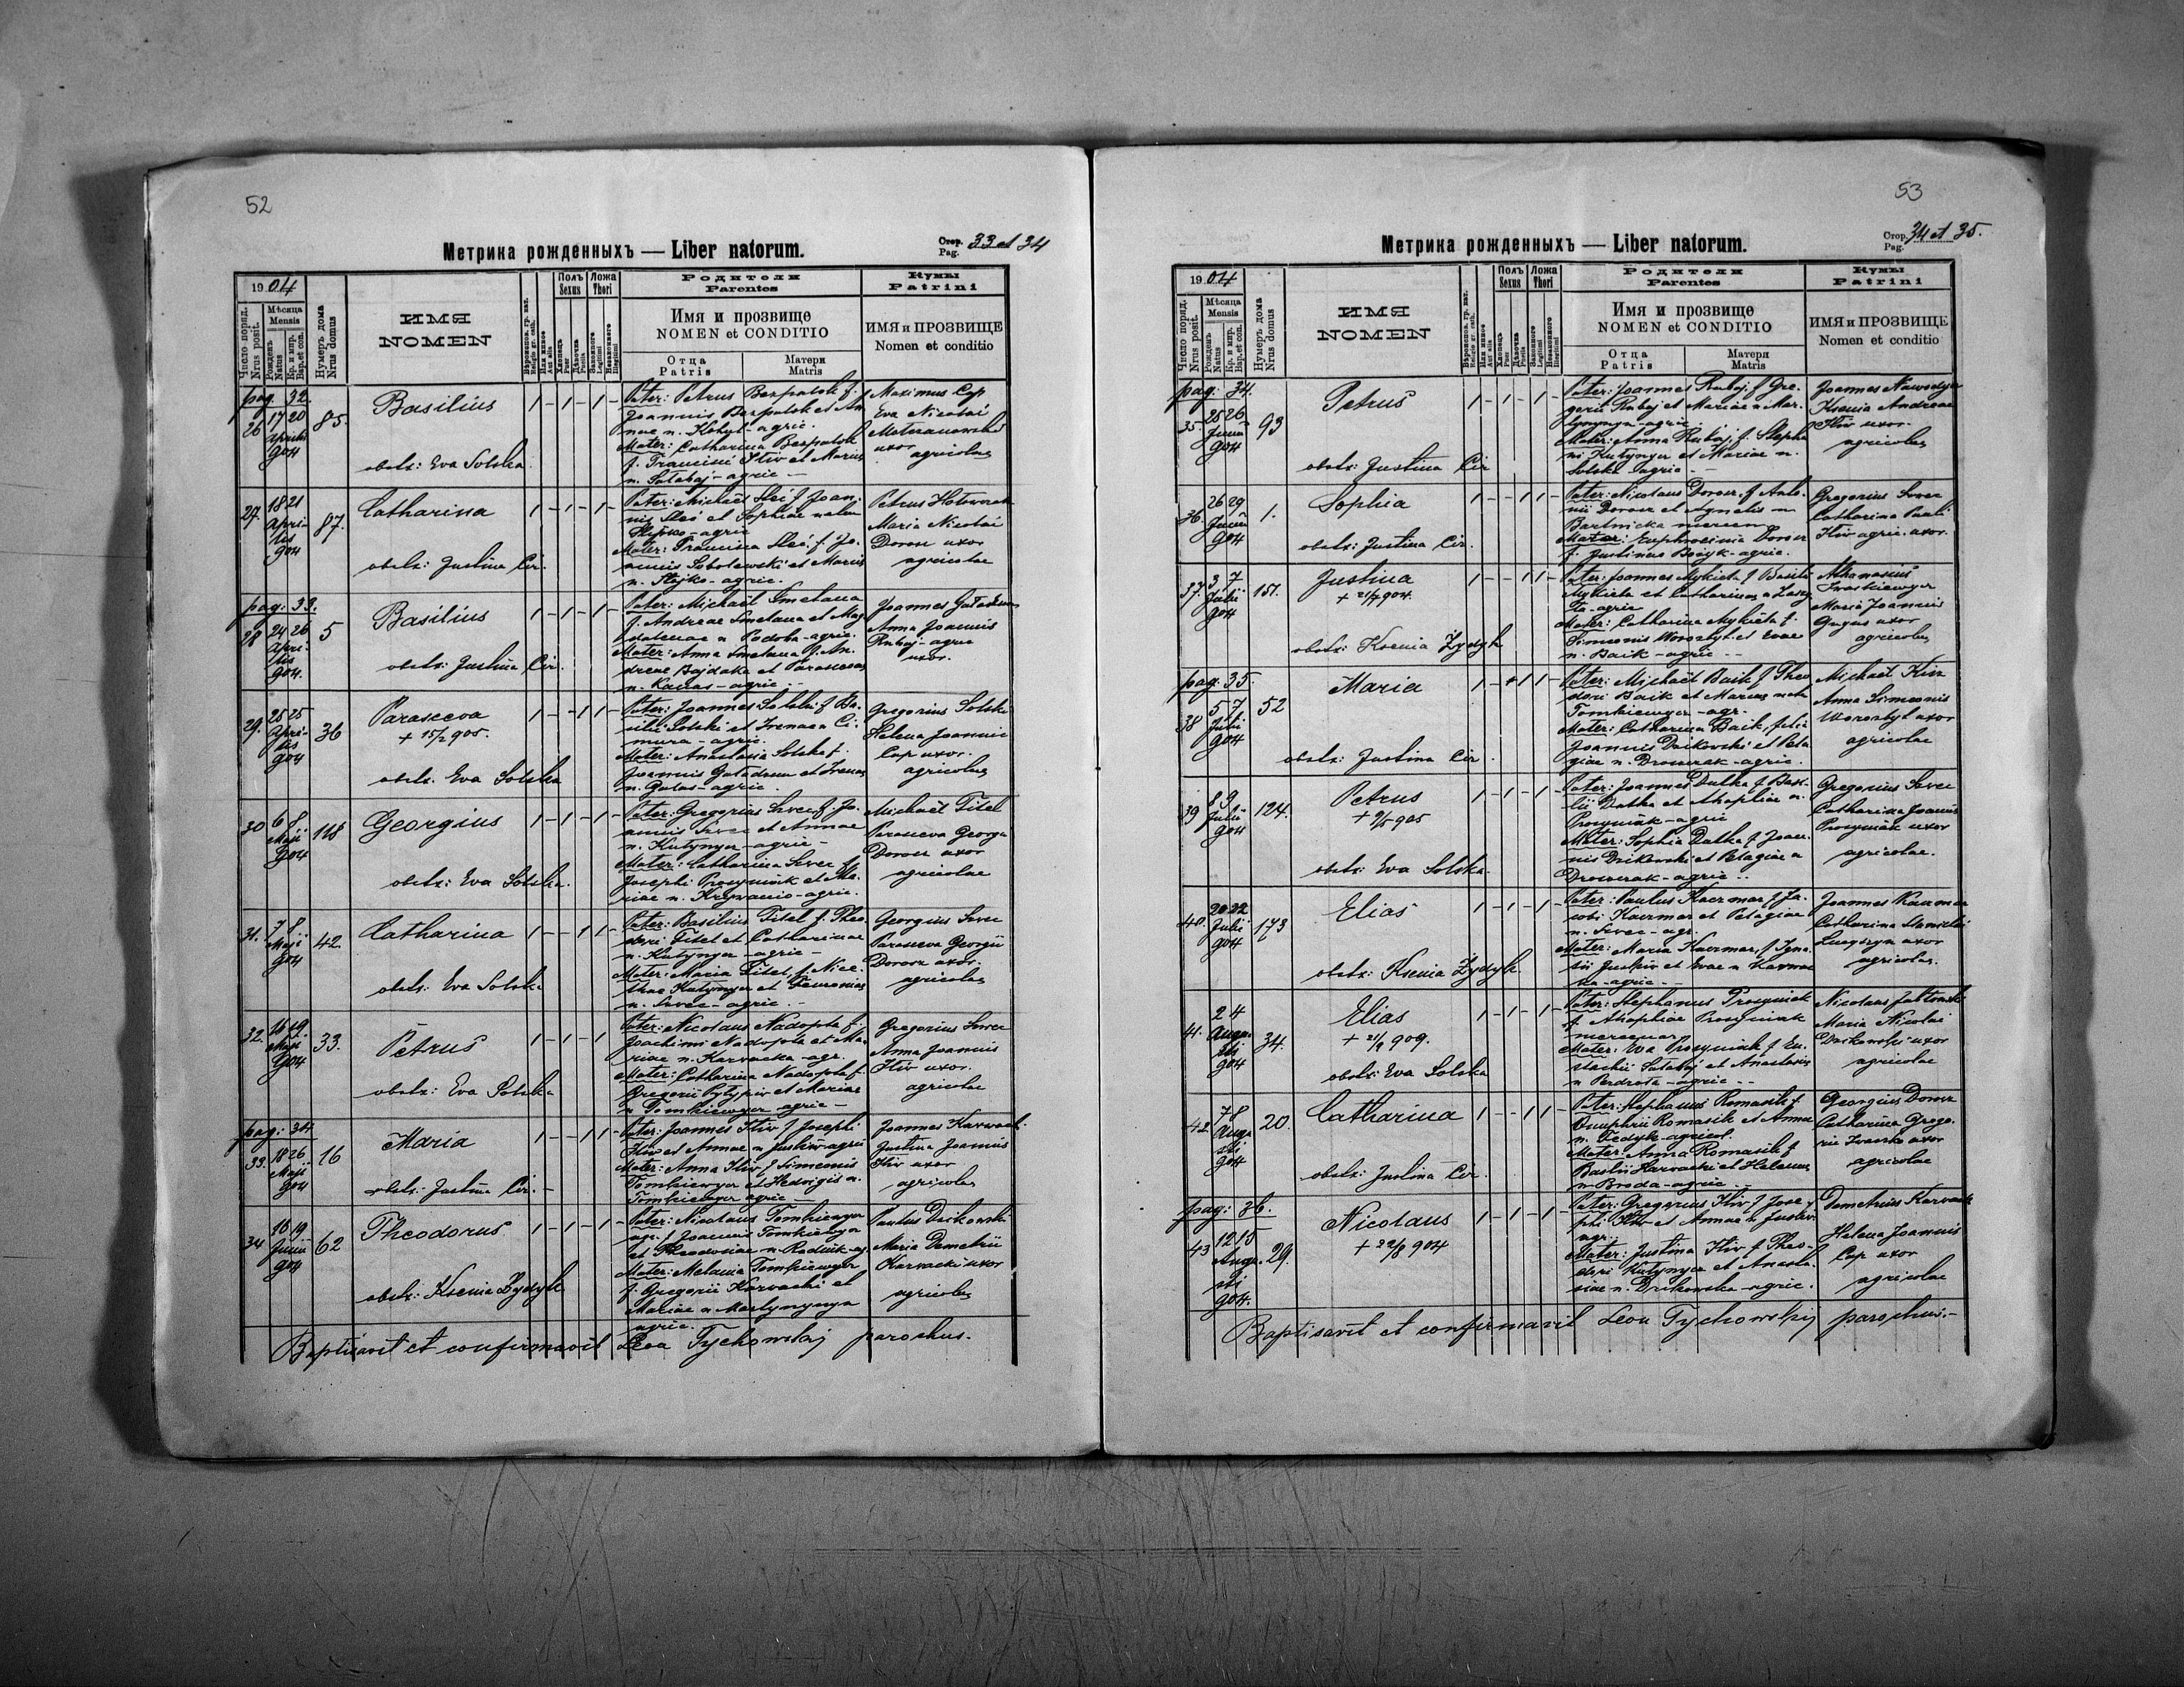 52
Метрика рожденныхъ — Liber natorum.
Стор. Pag. 33 et 34
1904
Число поряд. Nrus posit.
Мѣсяца Mensis
Рожденъ Natus
Кр. и мир. Bap. et con.
Нумеръ дома Nrus domus
ИМЯ
NOMEN
Полъ Sexus
Ложа Thori
Родители
Parentes
Имя и прозвище
NOMEN et CONDITIO
Отца Patris
Матери Matris
Кумы
Patrini
ИМЯ и ПРОЗВИЩЕ
Nomen et conditio
pag. 32.
26 17 20 Aprilis 904 85. Basilius
obstr: Eva Solska
Pater: Petrus Bezpalok f.
Joannis Bezpalok et An
nae n. Kobyl - agric.
Mater: Catharina Bezpalok
f. Francisci Iliw et Mariae
n. Sałabaj - agric
Maximus Cap
Eva Nicolai
uxor
agricolae
27. 18 21 Aprilis 904 87. Catharina
obstr: Justina Cir.
Pater: Michaël f. Joan
nis et Sophiae natae
agric
Mater: Francisca f. Jo.
annis Sobolewski et Mariae
agric.
Petrus
Maria Nicolai
Dorosz uxor
agricolae
pag: 33.
28 24 26 Aprilis 904. 5 Basilius
obstr: Justina Cir.
Pater: Michaël Smetana
f. Andreae Smetana et Mag
dalenae n Podoba - agric.
Mater: Anna Smetana f. An
dreae Bajdala et Parascevae
n. Kanas - agric
Joannes
Anna Joannis
Rubaj - agric
uxor.
29. 25 25 Aprilis 904 36 Parasceva
+ 15/2 905.
obstr. Eva Solska
Pater: Joannes Solski f. Ba
silii Solski et Irenae n Ci
mura - agric.
Mater: Anastasia Solska f.
Joannis et Irenae
n. Galas - agric
Gregorius Solski
Helena Joannis
Cap uxor.
agricolae
30 6 8 Maji 904 118 Georgius
obstr: Eva Solska.
Pater: Gregorius Szwec f. Jo.
annis Szwec et Annae
n. Kutynyez - agric -
Mater: Catharina Szwec f.
Josephi Prosyniak et Ma
riae n. Krywanio - agric.
Michaël Titel
Parasceva Georgii
Dorosz uxor
agricolae
31. 7 8 Maji 904 42. Catharina
obstr: Eva Solska
Pater: Basilius Titel f. Theo
dori Titel et Catharinae
n. Kutynyez - agric -
Mater: Maria Titel, f. Nice
thae Kutynyez et Femroniae
n. Szwec - agric. -
Georgius Szwec
Parasceva Georgii
Dorosz uxor.
agricolae
32. 16 19 Maji 904 33. Petrus
obstr: Eva Solska
Pater: Nicolaus Nadopta f.
Joachimi Nadopta et Ma
riae n. Karwacka - agr.
Mater: Catharina Nadopta f.
Gregorii et Mariae
n Tomkiewycz agric -
Gregorius Szwec
Anna Joannis
Iliw uxor.
agricolae
pag: 34
33. 18 26 Maji 904 16 Maria
obstr: Justina Cir. -
Pater: Joannes Iliw f Josephi
Iliw et Annae n Juskiw - agric
Mater: Anna Iliw f Simeonis
Tomkiewycz et Hedvigis n.
Tomkiewycz agric -
Joannes Karwacki
Justina Joannis
Iliw uxor
agricolae
34 16 19 Junii 904 62 Theodorus
obstr: Ksenia Zydyk
Pater: Nicolaus Tomkiewycz
agr. f Joannis Tomkiewycz
et Theodosiae n. Radiuk - ag.
Mater: Melania Tomkiewycz
f. Gregorii Karwacki et
Mariae n Martynynya
agric.
Paulus Dzikowski
Maria Demetrii
Karwacki uxor
agricolae
Baptisavit et confirmavit Leon Tychowskij parochus.
53
Метрика рожденныхъ — Liber natorum.
Стор. Pag. 34 et 35.
1904
Число поряд. Nrus posit.
Мѣсяца Mensis
Рожденъ Natus
Кр. и мир. Bap. et con.
Нумеръ дома Nrus domus
ИМЯ
NOMEN
Полъ Sexus
Ложа Thori
Родители
Parentes
Имя и прозвище
NOMEN et CONDITIO
Отца Patris
Матери Matris
Кумы
Patrini
ИМЯ и ПРОЗВИЩЕ
Nomen et conditio
pag: 34.
35 25 26 Junii 904 93 Petrus
obstr: Justina Cir
Pater: Joannes Rubaj f Gre.
gorii Rubaj et Mariae n Mar.
tynynya - agric.
Mater: Anna Rubaj, f. Stepha
ni Kutynyez et Mariae n.
Solska - agric -
Joannes
Ksenia Andreae
Iliw uxor.
agricolae
36. 26 29 Junii 904 1. Sophia
obstr: Justina Cir.
Pater: Nicolaus Dorosz. f Anto.
nii Dorosz et Agnetis n
Bartnicka mercen
Mater: Euphrosinia Dorosz
f. Justinae - agric.
Gregorius Szwec
Catharina Pauli
Iliw agric. uxor.
37. 3 7 Julii 904 151. Justina
+ 21/7 904.
obstr: Ksenia Zydyk
Pater: Joannes Mykieta f Basilii
Mykieta et Catharinae n
agric
Mater: Catharina Mykieta f.
Simeonis Worostyl et Evae
n. Baik - agric --
Athanasius
Maria Joannis
uxor
agricolae
pag: 35.
38 5 7 Julii 904 52 Maria
obstr: Justina Cir.
Pater: Michaël Baik f Theo
dori Baik et Mariae nata
Tomkiewycz - agr.
Mater: Catharina Baik, filia
Joannis Dzikowski et Pela
giae n. Drowrak - agric.
Michaël
Anna Simeonis
Worostyl uxor
agricolae
39 8 9 Julii 904 124. Petrus
+ 9/5 905
obstr: Eva Solska.
Pater: Joannes Dutka f Basi.
lii Dutka et Ahaphiae n.
Prosyniak - agric
Mater: Sophia Dutka f Joan.
nis Dzikowski et Pelagiae n
Drowrak - agric --
Gregorius Szwec
Catharina Joannis
Prosyniak uxor
agricolae.
40. 20 22 Julii 904 173 Elias
obstr: Ksenia Zydyk
Pater: Paulus Kaczmar f Ja.
cobi Kaczmar et Pelagiae
n. Szwec - agr.
Mater: Maria Kaczmar, f Igna
tii Juskiw et Evae n
agric -
Joannes Kaczmar
Catharina
uxor
agricolae.
41. 2 4 Augusti 904 34. Elias
+ 21/2 909.
obstr: Eva Solska
Pater: Stephanus Prosyniak
f. Ahaphiae Prosyniak
mercenar
Mater: Eva Prosyniak f Eu.
stachii Sałabaj et Anastasiae
n - agric --
Nicolaus
Maria Nicolai
Dzikowski uxor
agricolae
42 7 8 Augusti 904 20. Catharina
obstr: Justina Cir.
Pater: Stephanus Romasik f
Onuphrii Romasik et Annae
n. Fedyk - agricol.
Mater: Anna Romasik f
Basilii Karwacki et Helenae
n Broda - agric --
Georgius Dorosz
Catharina Grego.
rii uxor
agricolae
pag: 36.
43 12 15 Augusti 904. 29. Nicolaus
+ 22/8 904
Pater: Gregorius Iliw f Jose
phi Iliw et Annae n Juskiw
agr.
Mater: Justina Iliw f Theo.
dori Kutynyez et Anasta.
siae n. Dzikowska - agric.
Demetrius Karwacki
Helena Joannis
Cap uxor
agricolae
Baptisavit et confirmavit Leon Tychowskij parochus. -